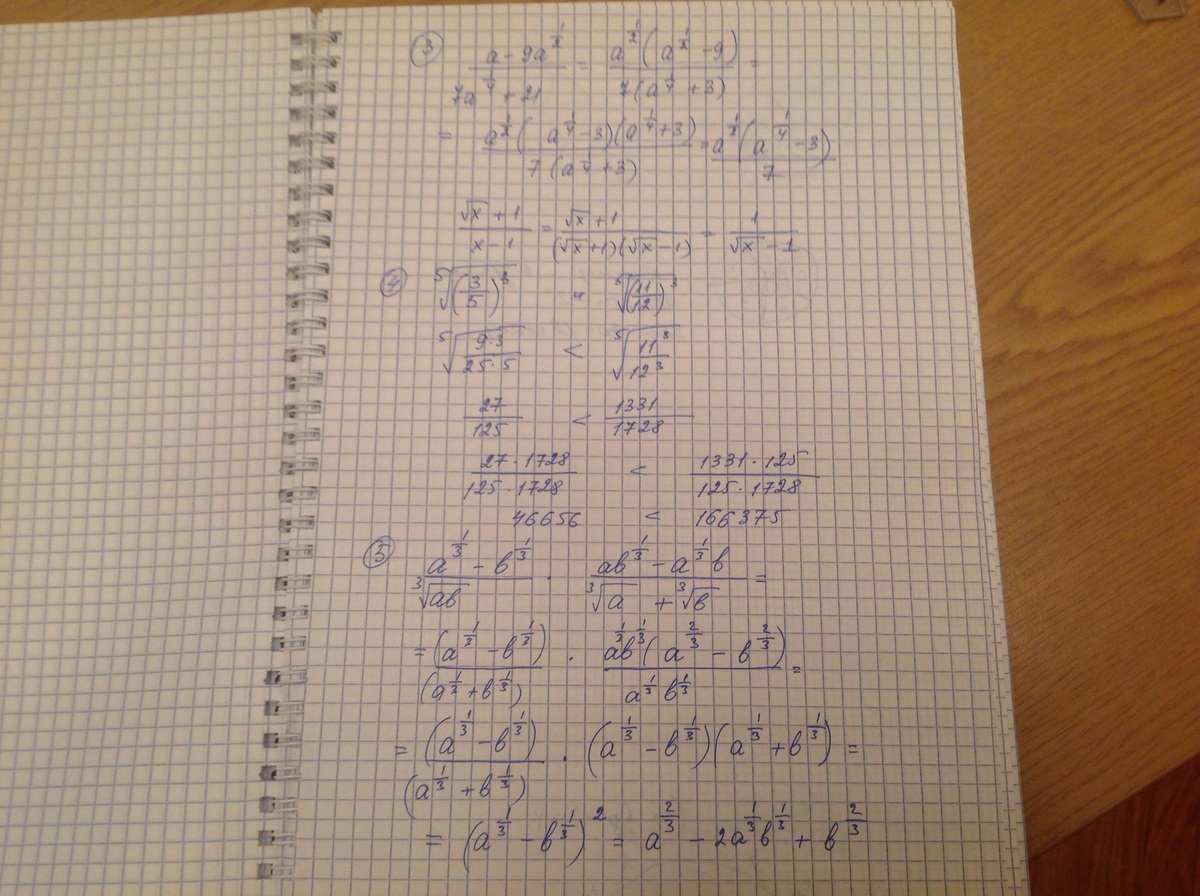 ③ (a - 9a^(1/2))/(7a^(1/4) + 21) = (a^(1/2)(a^(1/2) - 9))/(7(a^(1/4) + 3)) =
= (a^(1/2)(a^(1/4) - 3)(a^(1/4) + 3))/(7(a^(1/4) + 3)) = (a^(1/2)(a^(1/4) - 3))/7
(√x + 1)/(x - 1) = (√x + 1)/((√x + 1)(√x - 1)) = 1/(√x - 1)
④ ⁵√((3/5)³) и ⁵√((11/12)³)
⁵√((9·3)/(25·5)) < ⁵√(11³/12³)
27/125 < 1331/1728
(27·1728)/(125·1728) < (1331·125)/(125·1728)
46656 < 166375
⑤ (a^(1/3) - в^(1/3))/(³√(aв)) · (aв^(1/3) - a^(1/3)в)/(³√a + ³√в) =
= (a^(1/3) - в^(1/3))/(a^(1/3) + в^(1/3)) · (a^(1/3)в^(1/3)(a^(2/3) - в^(2/3)))/(a^(1/3)в^(1/3)) =
= (a^(1/3) - в^(1/3))/(a^(1/3) + в^(1/3)) · (a^(1/3) - в^(1/3))(a^(1/3) + в^(1/3)) =
= (a^(1/3) - в^(1/3))² = a^(2/3) - 2a^(1/3)в^(1/3) + в^(2/3)